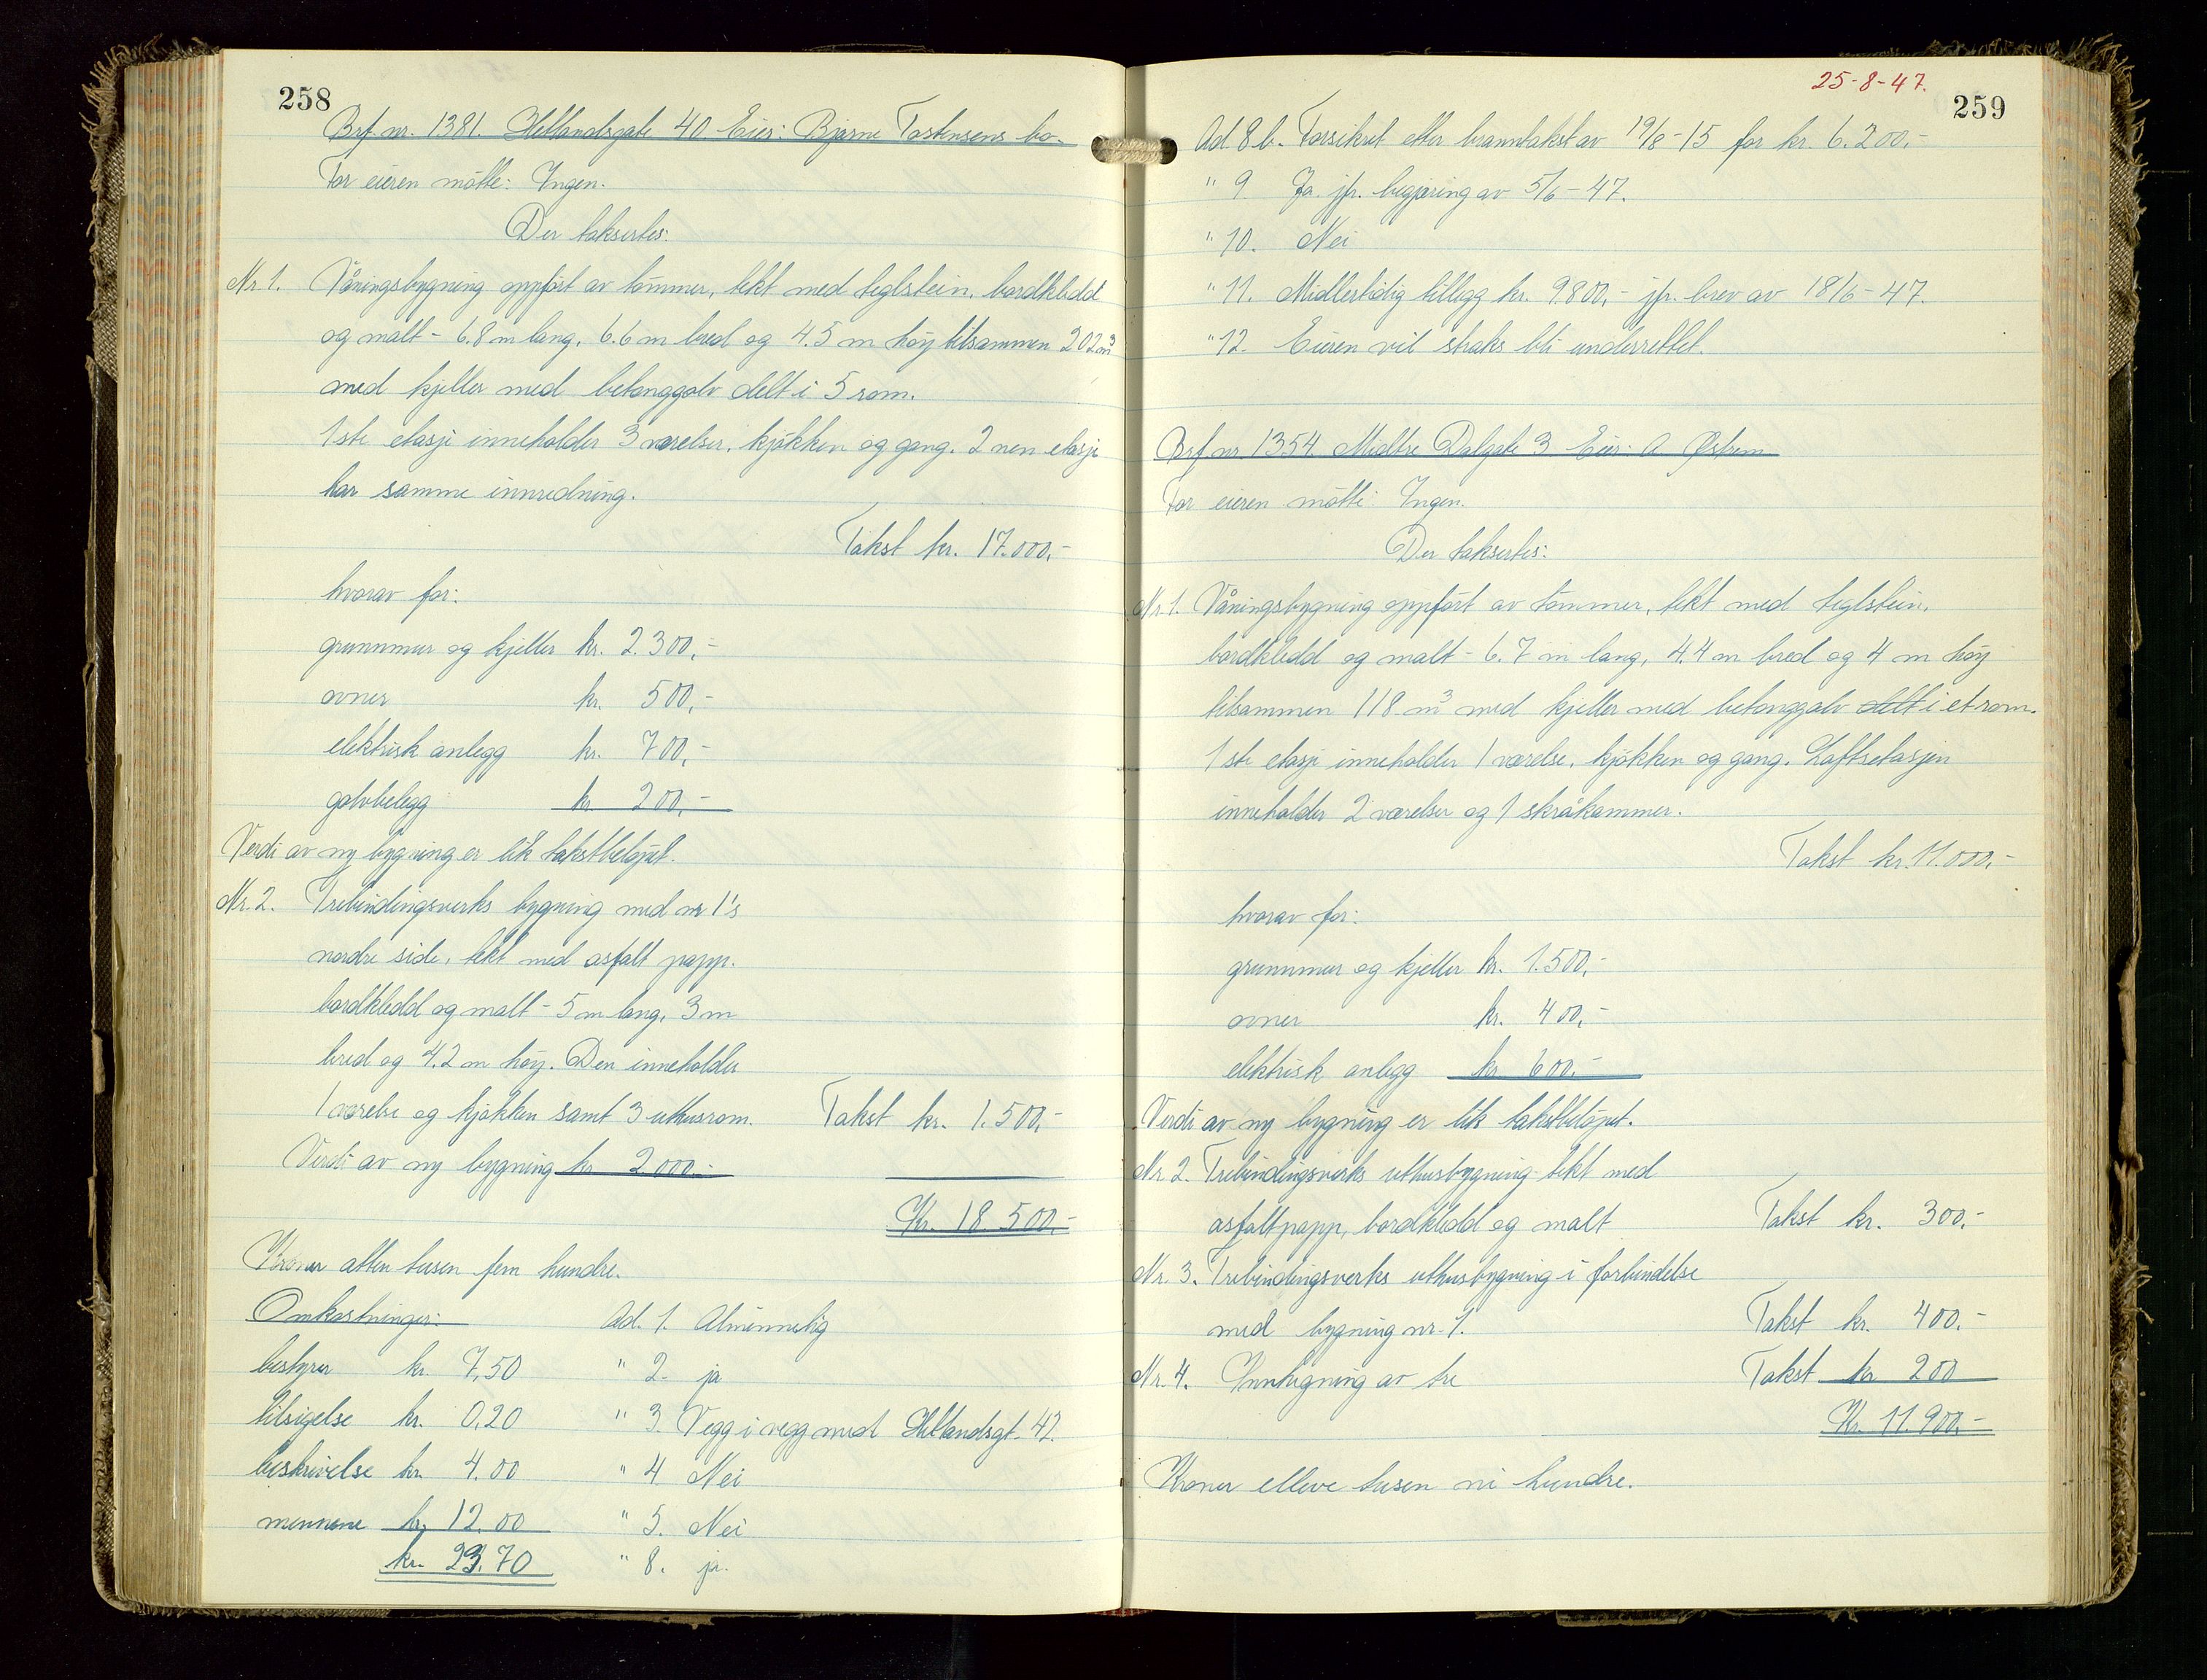 258
Brf. nr. 1381. Hetlandsgate 40 Eier: Bjarne Tostensens bo.
For eieren møtte: Ingen.
Der taksertes:
Nr 1. Våningsbygning oppført av tømmer, tekt med teglstein, bordkledd
og malt - 6.8 m lang, 6.6 m bred og 4.5 m høy tilsammen 202 m³
med kjeller med betonggolv delt i 5 rom.
1ste etasje inneholder 3 værelser, kjøkken og gang. 2 nen etasje
har samme innredning.
Takst kr. 17.000,-
hvorav for:
grunnmur og kjeller kr. 2.300,-
ovner kr. 500,-
elektrisk anlegg kr. 700,-
golvbelegg kr 200,-
Verdi av ny bygning er lik takstbeløpet.
Nr. 2. Trebindingsverks bygning med nr 1's
nordre side, tekt med asfalt papp.
bordkledd og malt - 5 m lang, 3 m
bred og 4.2 m høy. Den inneholder
1 værelse og kjøkken samt 3 uthusrom. Takst kr. 1.500,-
Verdi av ny bygning kr 2.000.-
Kr. 18 500,-
Kroner atten tusen fem hundre.
Omkostninger: Ad. 1. Alminnelig
bestyrer kr. 7,50 " 2. ja
tilsigelse kr. 0,20 " 3. Vegg i vegg med Hetlandsgt. 42.
beskrivelse kr. 4.00 " 4 Nei
mennene kr. 12.00 " 5. Nei
kr. 23.70 " 8. ja.
25-8-47.
259
Ad 8 b. Forsikret etter branntakst av 19/8-15 for kr. 6.200,-
" 9. Ja. jfr. begjæring av 5/6-47.
" 10. Nei
" 11. Midlertidig tillegg kr. 9.800,- jfr. brev av 18/6-47.
" 12. Eieren vil straks bli underrettet.
Brf. nr. 1354 Midtre Dalgate 3 Eier: A. Østrem
For eieren møtte: Ingen.
Der taksertes:
Nr. 1. Våningsbygning oppført av tømmer, tekt med teglstein,
bordkledd og malt - 6.7 m lang, 4.4 m bred og 4 m høy
tilsammen 118 m³ med kjeller med betonggolv delt i et rom.
1 ste etasje inneholder 1 værelse, kjøkken og gang. Loftsetasjen
inneholder 2 værelser og 1 skråkammer.
Takst kr. 11.000,-
hvorav for:
grunnmur og kjeller kr. 1.500,-
ovner kr. 400,-
elektrisk anlegg kr 600,-
Verdi av ny bygning er lik takstbeløpet.
Nr. 2. Trebindingsverks uthusbygning tekt med
asfaltpapp, bordkledd og malt Takst kr. 300,-
Nr. 3. Trebindingsverks uthusbygning i forbindelse
med bygning nr. 1. Takst kr. 400.-
Nr. 4. Innhegning av tre Takst kr 200
Kr. 11.900,-
Kroner elleve tusen ni hundre.